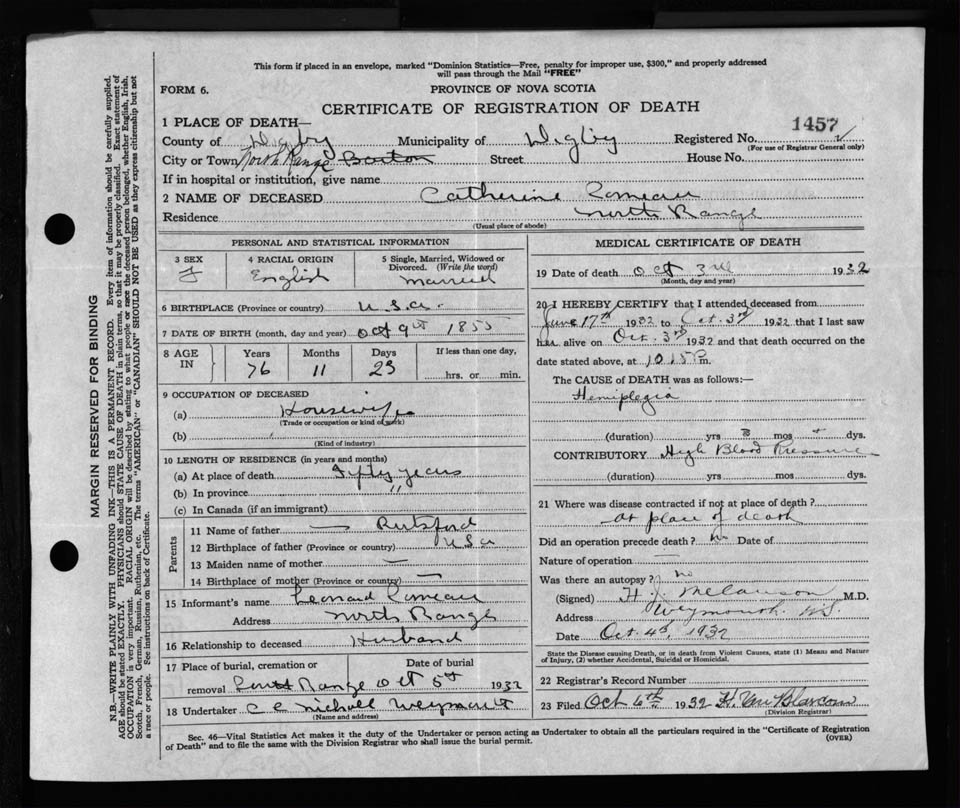 This form if placed in an envelope, marked "Dominion Statistics—Free, penalty for improper use, $300," and properly addressed
will pass through the Mail "FREE"
FORM 6.
PROVINCE OF NOVA SCOTIA
CERTIFICATE OF REGISTRATION OF DEATH
1 PLACE OF DEATH—
County of Digby Municipality of Digby Registered No. 1457
(For use of Registrar General only)
City or Town North Range Barton Street House No.
If in hospital or institution, give name
2 NAME OF DECEASED Catherine Comeau
Residence North Range
(Usual place of abode)
PERSONAL AND STATISTICAL INFORMATION
3 SEX 4 RACIAL ORIGIN 5 Single, Married, Widowed or
Divorced. (Write the word)
F English Married
6 BIRTHPLACE (Province or country) U.S.A.
7 DATE OF BIRTH (month, day and year) Oct 9th 1855
8 AGE IN Years Months Days If less than one day,
76 11 23 hrs. or min.
9 OCCUPATION OF DECEASED
(a) Housewife
(Trade or occupation or kind of work)
(b)
(Kind of industry)
10 LENGTH OF RESIDENCE (in years and months)
(a) At place of death Fifty years
(b) In province "
(c) In Canada (if an immigrant)
Parents
11 Name of father — Rutsford
12 Birthplace of father (Province or country) U.S.A
13 Maiden name of mother —
14 Birthplace of mother (Province or country) —
15 Informant's name Leonard Comeau
Address North Range
16 Relationship to deceased Husband
17 Place of burial, cremation or Date of burial
removal South Range Oct 5th 1932
18 Undertaker C E Nichall Weymouth
(Name and address)
MEDICAL CERTIFICATE OF DEATH
19 Date of death Oct 3rd 1932
(Month, day and year)
20 I HEREBY CERTIFY that I attended deceased from
June 17th 1932 to Oct. 3rd 1932 that I last saw
her alive on Oct. 3rd 1932 and that death occurred on the
date stated above, at 10.15 P.m.
The CAUSE of DEATH was as follows:—
Hemiplegia
(duration) yrs 3 mos - dys.
CONTRIBUTORY High Blood Pressure
(duration) yrs mos dys.
21 Where was disease contracted if not at place of death?
At place of death
Did an operation precede death? No Date of
Nature of operation —
Was there an autopsy? No
(Signed) H J Melanson M.D.
Address Weymouth N.S.
Date Oct. 4th 1932
State the Disease causing Death, or in death from Violent Causes, state (1) Means and Nature
of Injury, (2) whether Accidental, Suicidal or Homicidal.
22 Registrar's Record Number
23 Filed Oct 6th 1932 H. Van Blarcom
(Division Registrar)
Sec. 46—Vital Statistics Act makes it the duty of the Undertaker or person acting as Undertaker to obtain all the particulars required in the "Certificate of Registration
of Death" and to file the same with the Division Registrar who shall issue the burial permit.
(OVER)
MARGIN RESERVED FOR BINDING
N.B.—WRITE PLAINLY WITH UNFADING INK—THIS IS A PERMANENT RECORD. Every item of information should be carefully supplied.
AGE should be stated EXACTLY. PHYSICIANS should STATE CAUSE OF DEATH in plain terms, so that it may be properly classified. Exact statement of
OCCUPATION is very important. RACIAL ORIGIN will be described by stating to what people or race the deceased person belonged, whether English, Irish,
Scotch, French, German, Russian, Ruthenian, etc. The terms "AMERICAN" or "CANADIAN" SHOULD NOT BE USED as they express citizenship but not
a race or people. See instructions on back of Certificate.